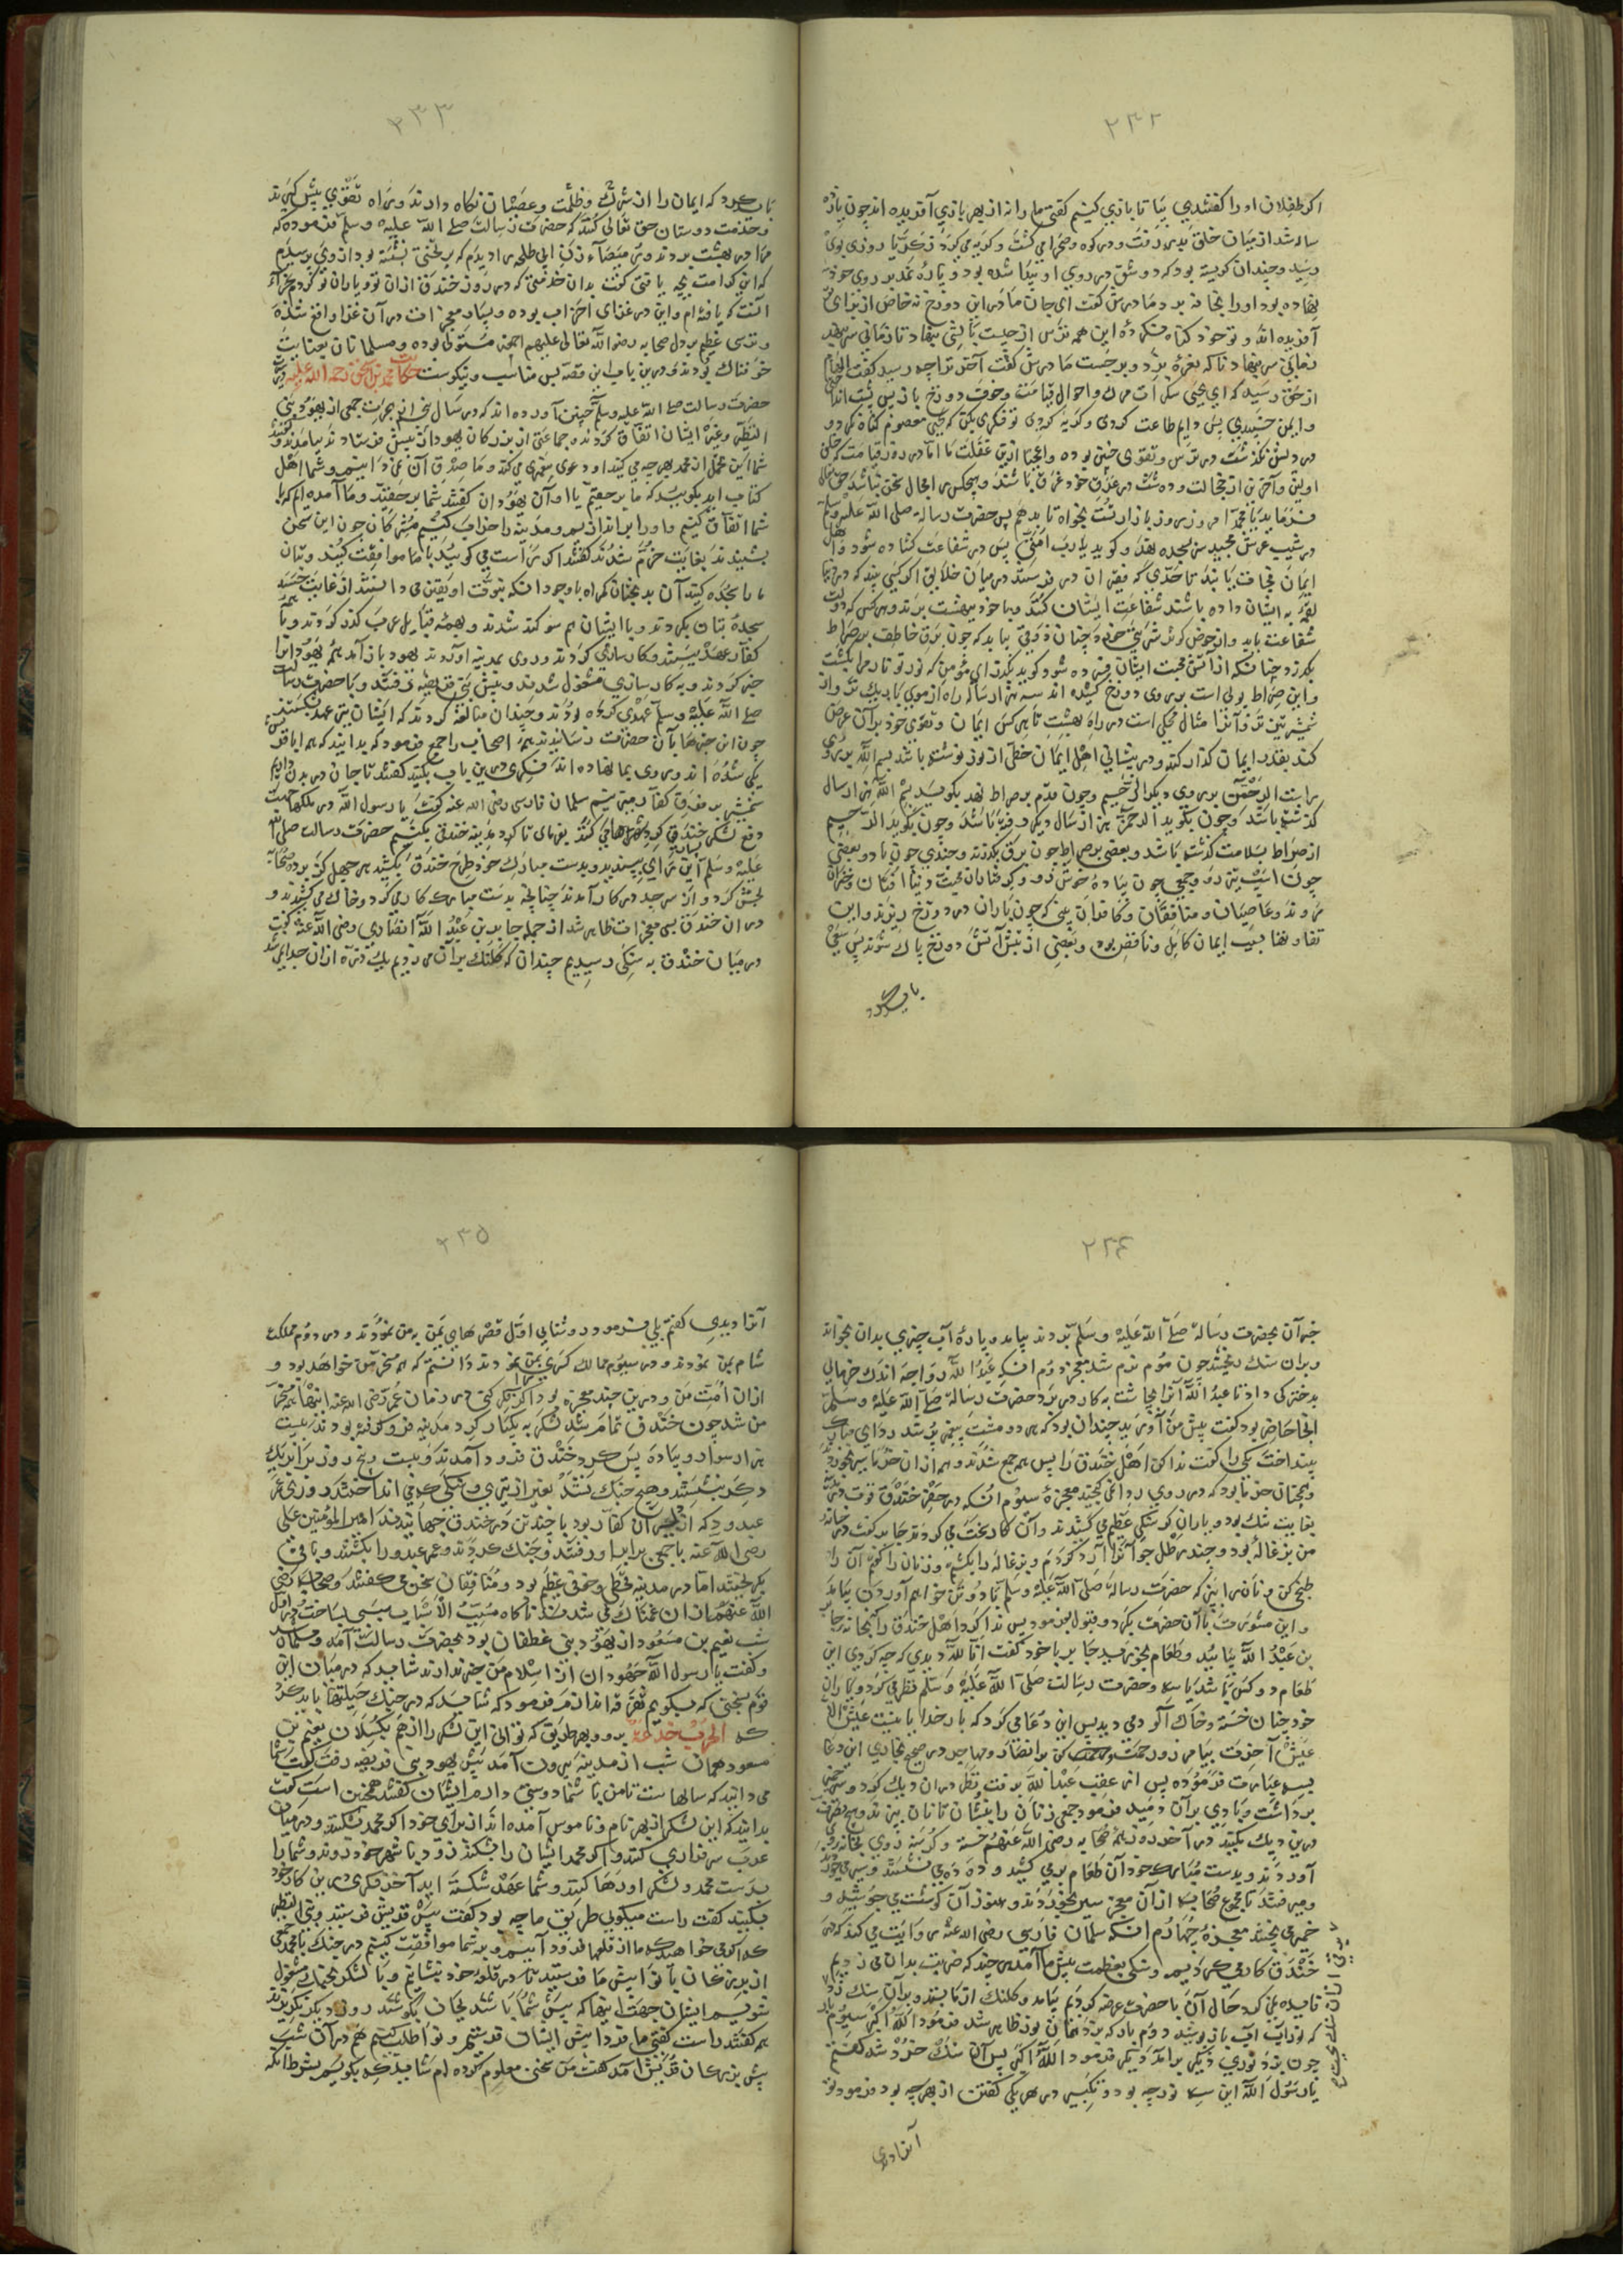 ۲۳۲
اکر طفلان اورا کفتندی بیا تا بازی کنیم کفتی ما را نه از بهر بازی آفریده اند چون یازده
ساله شد از میان خلق بدر رفت و در کوه و صحرا می کشت و کریه می کرد
رسید و چندان کریسته بود که دو شق در روی او پیدا شده بود و پارهٔ نمد بر روی خود
نهاده بود اورا بخانه برد مادرش کفت ای جان مادر این دوزخ نه خاص از برای تو
آفریده اند و تو خود کناه نکردهٔ این همه ترس از چیست
زمانی سر بنهاد ناکه نعرهٔ بزد و برجست مادرش کفت آخر ترا چه رسید کفت
از حق رسید که ای یحیی سکرات مرک و احوال قیامت و خوف دوزخ باز پس پشت انداختی
و ایمن خسبیدی پس دایم طاعت کردی و کریه کردی تو فکری بکن که یحیی معصوم کناه نکرد و
در دلش نکذشت در ترس و تقوی چنین بوده واعجبا ازین غفلت ما اما در روز قیامت که خلق
اولین و آخرین از خجالت و دهشت در عرق خود غرق باشند و هیچکس را مجال سخن نباشد حق تعالی
فرماید یا محمد امروز روز بازار تست بخواه تا بدهم پس حضرت رسالة صلی الله علیه وسلم
در شیب عرش مجید سر بسجده نهد و کوید یا رب امتی پس در شفاعت کشاده شود و اهل
ایمان نجات یابند تا حدی که فقیران در رسند در میان خلایق اکر کسی بینند که در دنیا
لقمهٔ به ایشان داده باشند شفاعت ایشان کنند و با خود ببهشت برند و هر کس که دولت
شفاعت یابد و از حوض کوثر شربتی خورد چنان ذوقی بیابد که چون برق خاطف بر صراط
بکذرد چنانکه از آتش محبت ایشان فسرده شود کوید بکذر ای مؤمن که نور تو نار مرا بکشت
و این صراط پولی است بر روی دوزخ کشیده اند سه هزار ساله راه از موی باریک تر و از
شمشیر تیزتر و آنرا مثال محکی است در راه بهشت تا هر کس ایمان و تقوی خود بر آن عرض
کند بقدر ایمان کذار کند و در پیشانی اهل ایمان خطی از نور نوشته باشد بسم الله بر روی
رایت الرحمن بر روی دیکر الرحیم و چون قدم بر صراط نهد بکوید بسم الله هزار سال
کذشته باشد و چون بکوید الرحمن هزار سال دیکر رفته باشد و چون بکوید الرحیم
از صراط بسلامت کذشته باشد و بعضی بر صراط چون برق بکذرند و چندی چون باد و بعضی
چون اسب تیز رو و جمعی چون پیادهٔ خوش رو و کرفتاران محبت دنیا افتان و خیزان
روند و عاصیان و منافقان و کافران بینی که چون باران در دوزخ ریزند و این
تفاوتها بسبب ایمان کامل و ناقص بود و بعضی از تبش آتش دوزخ پاک شوند پس سعی
باید کرد
۲۳۳
باید کرد که ایمان را از شرک و ظلمت و عصیان نکاه دارند و راه تقوی پیش کیرند
و خدمت دوستان حق تعالی کنند که حضرت رسالت صلی الله علیه وسلم فرموده که
مرا در بهشت بردند و رمیصاء زن ابی طلحه را دیدم که بر تختی نشسته بود از وی پرسیدم
که این کرامت بچه یافتی کفت بدان خدمتی که در روز خندق از آن تو و یاران تو کردم جزاء
آنست که یافته ام و این در غزای احزاب بوده و بسیار معجزات در آن غزا واقع شده
و ترسی عظیم بر دل صحابه رضوان الله تعالی علیهم اجمعین مستولی بوده و مسلمانان بغایت
خوفناک بودند و درین باب این قصه بس مناسب و نیکوست حکایت محمد بن اسحق رحمه الله علیه در
حضرت رسالت صلی الله علیه وسلم چنین آورده اند که در سال پنجم از هجرت جمعی از یهود بنی
النضیر و غیر ایشان اتفاق کردند و جماعتی از بزرکان یهود را پیش قریش فرستادند بیامدند و کفتند
شما این عمل از محمد بهر چه می کنید او دعوی پیغمبری می کند و ما صدق آن نمی دانیم و شما اهل
کتاب اید بکویید که ما بر حقیم یا او آن یهودان کفتند شما بر حقید و ما آمده ایم که با
شما اتفاق کنیم و اورا براندازیم و مدینه را خراب کنیم مشرکان چون این سخن
بشنیدند بغایت خرم شدند کفتند اکر راست می کویید با ما موافقت کنید و بتان
ما را سجده کنید آن بدبختان کمراه با وجود انکه نبوت او یقین می دانستند از غایت حسد
سجدهٔ بتان بکردند و با ایشان هم سوکند شدند و بهمه قبایل عرب کذر کردند و با
کفار عهد ببستند و کارسازی کردند و روی بمدینه آوردند یهود باز آمد همه یهود را
خبر کردند و به کارسازی مشغول شدند و پیش بنی قریظه رفتند و با حضرت رسالت
صلی الله علیه وسلم عهدی کرده بودند و چندان مبالغه کردند که ایشان نیز عهد بشکستند
چون این خبرها بآن حضرت رسانیدند همه اصحاب را جمع فرمود که بدانید که همه کافران
یکی شده اند و روی بما نهاده اند فکری درین باب بکنید کفتند تا جان در بدن داریم
شمشیر بر فرق کفار می زنیم سلمان فارسی رضی الله عنه کفت یا رسول الله در ملک ما جهت
دفع لشکر خندق کرد شهرها می کنند بفرمای تا کرد مدینه خندقی بکنیم حضرت رسالت صلی الله
علیه وسلم این رای بپسندید و بدست مبارک خود طرح خندق بکشید هر چهل کز بر ده صحابه
بخش کرد و از سر جد در کار آمدند چنانچه بدست مبارک کار می کرد و خاک می کشیدند و
در آن خندق بسی معجزات ظاهر شد از جمله جابر بن عبد الله انصاری رضی الله عنه کفت
در میان خندق به سنکی رسیدیم چندان که کلنک بر آن می زدیم یک ذره از آن جدا نمی شد
۲۳۴
خبر آن بحضرت رسالة صلی الله علیه وسلم بردند بیامد و پارهٔ آب چیزی بدان بخواند
و بر آن سنک ریختند چون موم نرم شد معجزه دوم انکه عبد الله رواحه اندک خرمایی
بدخترکی داد تا عبد الله آنرا بچاشت به کار در برد حضرت رسالة صلی الله علیه وسلم
آنجا حاضر بود کفت پیش من آور بدید چندان بود که هر دو مشت پیغمبر پر شد ردای مبارک
بینداخت یکی را کفت ندا کن اهل خندق را پس همه جمع شدند و همه از آن خرما سیر بخوردند
و همچنان خرما بود که در روی ردا نمی کنجید معجزهٔ سوم انکه در حفر خندق قوت
بغایت تنک بود و یاران کرسنکی عظیم می کشیدند و آن کار سخت می کردند جابر کفت در خانهٔ
من بزغالهٔ بود و چند رطل جو آنرا آرد کردم و بزغاله را بکشتم و زنان را کفتم آن را
طبخ کن و نان را بپز که حضرت رسالة صلی الله علیه وسلم با دو تن خواهم آوردن بیامد
و این مشورت با آن حضرت بکرد و قبول فرمود پس ندا کرد اهل خندق را بخانه جابر
بن عبد الله بیایید و طعام بخورید جابر با خود کفت انا لله دیدی که چه کردی این
طعام دو کس باشد یا سه و حضرت رسالت صلی الله علیه وسلم نظر می کرد و یاران
خود چنان خسته و خاک آلود می دید پس این دعا می کرد که بار خدایا بنیت عیش الا
عیش آخرت بیامرز و رحمت کن بر انصار و مهاجر در صحیح بخاری این دعا
بسه عبارت فرموده پس از عقب عبد الله برفت نظر در آن دیک کرد و سرپوش
برداشت و بادی بر آن دمید فرمود جمعی زنان را بنشان تا نان پزند و هیچ نظر
درین دیک مکنید در آخر روز همه صحابه رضی الله عنهم خسته و کرسنه روی بخانه جابر
آوردند و بدست مبارک خود آن طعام بر می کشید و ده ده می نشستند و سیر می خوردند
و می رفتند تا مجموع صحابه از آن معجزه سیر بخوردند و هنوز آن کوشت می جوشید و
خمیر می پختند معجزهٔ چهارم انکه سلمان فارسی رضی الله عنه روایت می کند که در
خندق کار می کردیم و سنکی بعظمت پیش ما آمد هر چند که ضربت بدان می زدیم
فایده نمی کرد حال آن با حضرت عرضه کردیم بیامد و کلنک از ما بستد و بر آن سنک زد
چون بزد نوری دیکر برآمد دیکر فرمود الله اکبر پس آن سنک خرد شد کفتم
یا رسول الله این سه نور چه بود و تکبیر در هر یکی کفتن از بهر چه بود فرمود تو
آنها دیدی
۲۳۵
آنها دیدی کفتم بلی فرمود در روشنایی اول قصرهای یمن به من نمودند و در دوم مملکت
شام بمن نمودند و در سیوم ممالک کسری بمن نمودند دانستم که همه مسخر من خواهد بود و
از آن امت من و درین چند معجزه بود در زمان عمر رضی الله عنه اینها همه مسخر
من شد چون خندق تمام شد لشکر به یکبار کرد مدینه فرو کرفته بودند بیست
هزار سوار و پیاده پس کرد خندق فرود آمدند و بیست و پنج روز برابر یک
دیکر بنشستند و هیچ جنک نشد بغیر از تیری و سنکی که می انداختند و روزی عمرو
عبدود که از دلیران کفار بود با چند تن در خندق جهانیدند امیر المؤمنین علی
رضی الله عنه با جمعی برابر او رفتند و جنک کردند و عمرو عبدود را بکشتند و باقی
بکریختند اما در مدینه قحطی و خوفی عظیم بود و منافقان سخن می کفتند و صحابه رضی
الله عنهم از آن غمناک می شدند ناکاه مسبب الاسباب سببی بساخت در اول
شب نعیم بن مسعود از یهود بنی غطفان بود بحضرت رسالت آمد و مسلمان شد
و کفت یا رسول الله جهودان از اسلام من خبر ندارند شاید که در میان این
قوم سخنی که بکویم تفرقه اندازم فرمود که شاید که در جنک حیلتها باید کرد
که الحرب خدعة برو و بهر طریق که توانی این لشکر را از هم بکسلان نعیم بن
مسعود همان شب از مدینه بیرون آمد پیش یهود بنی قریظه رفت کفت شما
می دانید که سالهاست تا من با شما دوستی دارم ایشان کفتند همچنین است کفت
بدانید که این لشکر از بهر نام و ناموس آمده اند از برای خود اکر محمد شکند در میان
عرب سرفرازی کنند و اکر محمد ایشان را بشکند زود با شهر خود روند و شما را
بدست محمد و لشکر او رها کنند و شما عهد شکسته اید آخر فکری در این کار خود
بکنید کفتند راست میکویی طریق ما چه بود کفت پیش قریش فرستید
که اکر می خواهید که ما از قلعها فرود آییم و با شما موافقت کنیم در جنک با محمد جمعی
از بزرکان با نوا پیش ما فرستید تا در قلعهٔ خود بنشانیم و با لشکر بجنک مشغول
شویم ایشان جهت اینها که پیش شما باشند بجان بکوشند و روی دیکر نکریزند
همه کفتند راست کفتی ما فردا پیش ایشان فرستیم و نوا طلب کنیم هم در آن شب
پیش بزرکان قریش آمد کفت من سخنی معلوم کرده ام شاید که بکویم بشرط آنکه